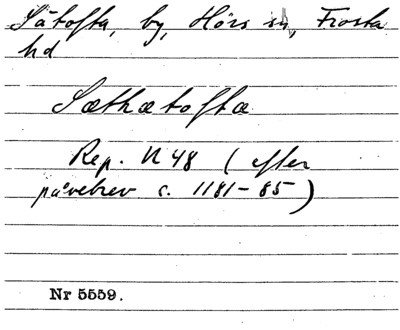 Sätofta, by, Hörs sn, Frosta
hd
Sæthætoftæ
Rep. N 48 (efter
påvebrev c. 1181-85)
Nr 5559.